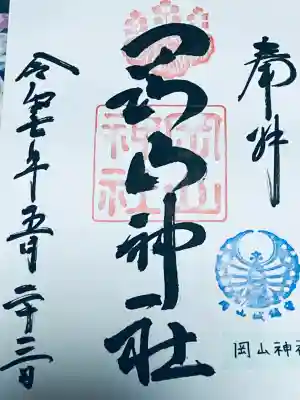 奉拝
岡山神社
岡山神社
令和七年五月二十三日
岡山神社